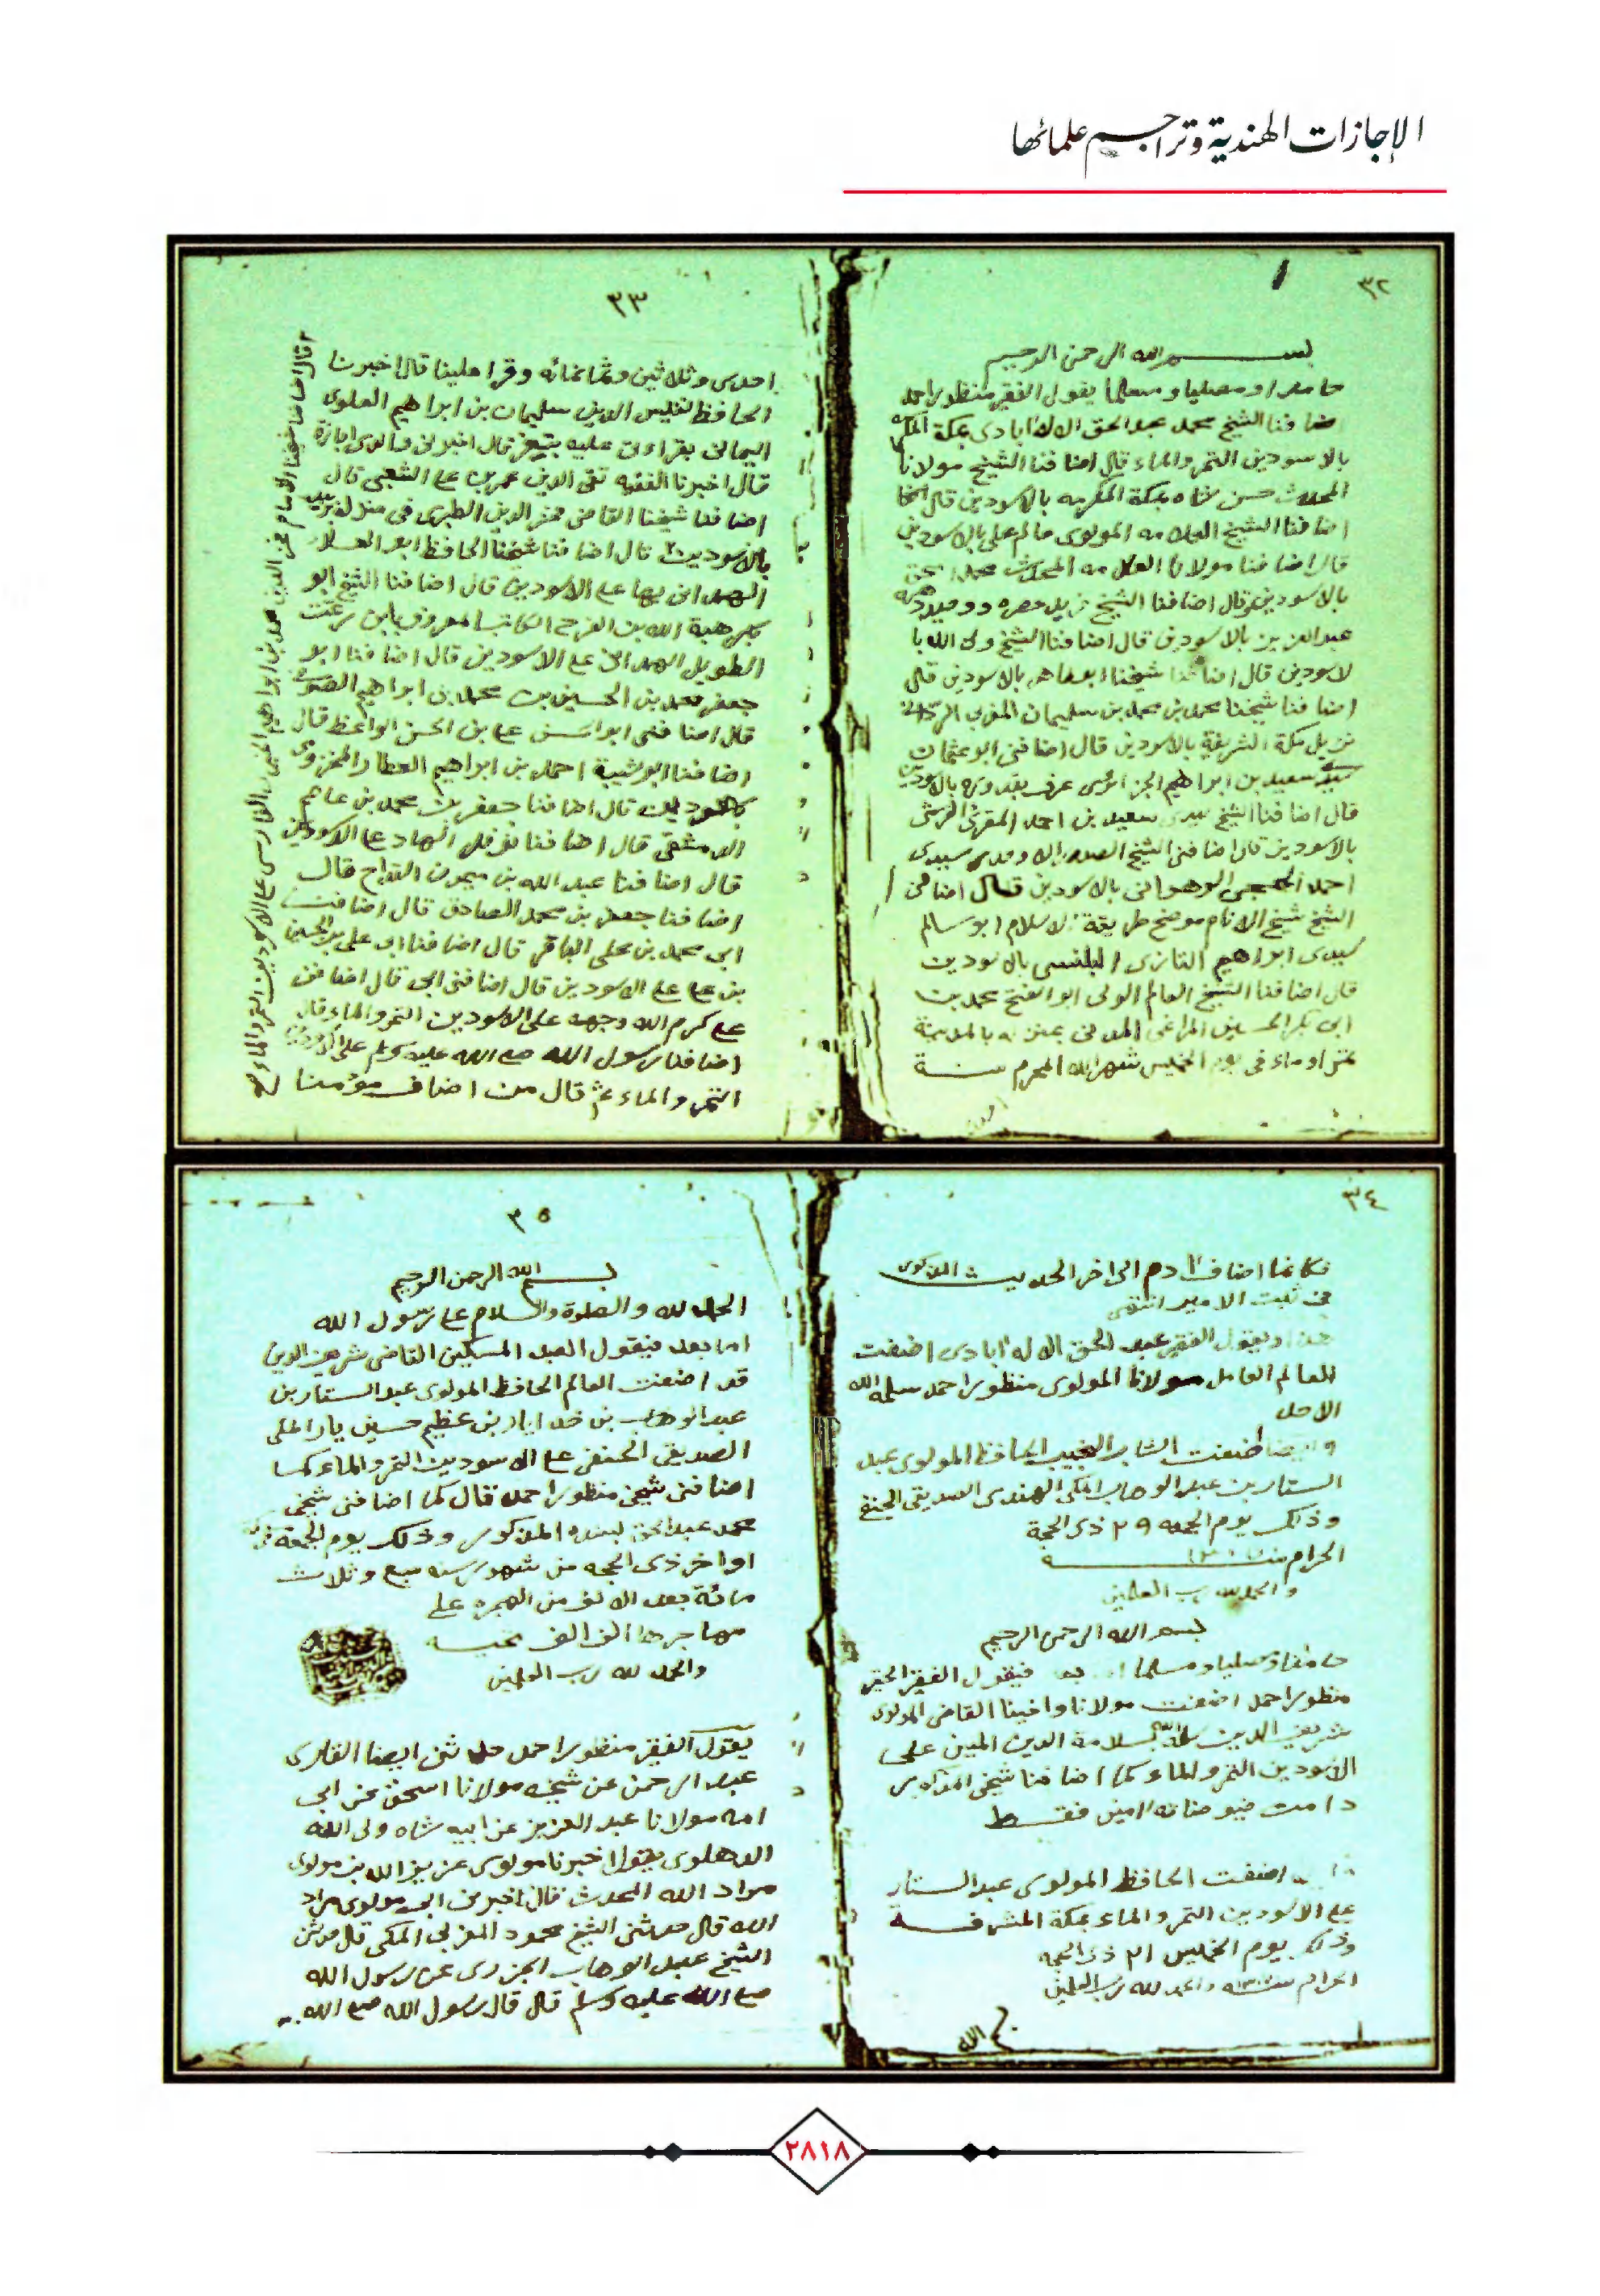 الإجازات الهندية وتراجم علمائها
٣٢
بسم الله الرحمن الرحيم
حامدا ومصليا ومسلما يقول الفقير منظور احمد
اضافنا الشيخ محمد عبد الحق الاله ابادى بمكة المكرمه
بالاسودين التمر والماء قال اضافنا الشيخ مولانا
المحدث حسن شاه بمكة المكرمه بالاسودين قال
اضافنا الشيخ العلامه المولوى عالم على بالاسودين
قال اضافنا مولانا العلامه المحدث محمد اسحق
بالاسودين وقال اضافنا الشيخ
عبد العزيز بالاسودين قال اضافنا الشيخ ولى الله با
لاسودين قال اضافنا شيخنا ابو طاهر بالاسودين قال
اضافنا شيخنا محمد بن محمد بن سليمان المغربى
نزيل مكة الشريفة بالاسودين قال اضافنى ابو عثمان
سعيد بن ابراهيم الجزائرى عرف بقدوره بالاسودين
قال اضافنا الشيخ سيدى سعيد بن احمد المقرى القرشى
بالاسودين قال اضافنى الشيخ الصدر الاوحد سيدى
احمد الحجى الوهرانى بالاسودين قال اضافنى
الشيخ شيخ الانام موضح طريقة الاسلام ابو سالم
سيدى ابراهيم التازى بالاسودين
قال اضافنا الشيخ العالم الولى ابو الفتح محمد بن
ابى بكر الحسين المراغى المدنى بمنزله بالمدينة
تمرا وماء فى يوم الخميس شهر الله المحرم سنة
٣٣
احدى وثلاثين وثمانمائه وقرا علينا قال اخبرنا
الحافظ نفيس الدين سليمان بن ابراهيم العلوى
اليمانى بقراءتى عليه بتعز قال اخبرنى والدى اجازة
قال اخبرنا الفقيه تقى الدين عمر بن على الشعبى قال
اضافنا شيخنا القاضى فخر الدين الطبرى فى منزله
بالاسودين قال اضافنا شيخنا الحافظ ابو العلاء
الهمدانى بها على الاسودين قال اضافنا الشيخ ابو
بكر هبة الله بن الفرج الكاتب المعروف بابن
الطويل الهمدانى على الاسودين قال اضافنا ابو
جعفر محمد بن الحسين بن محمد بن ابراهيم الصوفى
قال اضافنى ابو الحسن على بن الحسن الواعظ قال
اضافنا ابو شيبة احمد بن ابراهيم العطار المخزومى
بالاسودين قال اضافنا جعفر بن محمد بن عاصم
الدمشقى قال اضافنا نوفل بن الهاد على الاسودين
قال اضافنا عبد الله بن ميمون القداح قال
اضافنا جعفر بن محمد الصادق قال اضافنى
ابى محمد بن على الباقر قال اضافنا ابى على بن الحسين
بن على على الاسودين قال اضافنى ابى قال اضافنى
على كرم الله وجهه على الاسودين التمر والماء قال
اضافنا رسول الله صلى الله عليه وسلم على الاسودين
التمر والماء ثم قال من اضاف مؤمنا
قال اضافنا شيخنا الامام فخر الدين محمد بن ابراهيم الفارسى على الاسودين التمر والماء
٣٤
فكانما اضاف ادم الى اخر الحديث المذكور
فى ثبت الامير انتهى
هذا ويقول الفقير عبد الحق الاله ابادى اضفت
للعالم العامل مولانا المولوى منظور احمد سلمه الله
الاحد
وايضا اضفت الشاب النجيب الحافظ المولوى عبد
الستار بن عبد الوهاب المكى الهندى الصديقى الحنفى
وذلك يوم الجمعه ٢٩ ذى الحجة
الحرام سنة
والحمد لله رب العلمين
بسم الله الرحمن الرحيم
حامدا ومصليا ومسلما اما بعد فيقول الفقير الحقير
منظور احمد اضفت مولانا واخينا القاضى المولوى
شريف الدين سلمه الله بسلامة الدين المبين على
الاسودين التمر والماء كما اضافنا شيخى المذكور
دامت فيوضاته امين فقط
اضفت الحافظ المولوى عبد الستار
على الاسودين التمر والماء بمكة المشرفة
وذلك يوم الخميس ٢١ ذى الحجه
الحرام سنه والحمد لله رب العلمين
٣٥
بسم الله الرحمن الرحيم
الحمد لله والصلوة والسلام على رسول الله
اما بعد فيقول العبد المسكين القاضى شريف الدين
قد اضفت العالم الحافظ المولوى عبد الستار بن
عبد الوهاب بن خدايار بن عظيم حسين يار المكى
الصديقى الحنفى على الاسودين التمر والماء كما
اضافنى شيخى منظور احمد قال كما اضافنى شيخى
محمد عبد الحق بسنده المذكور وذلك يوم الجمعة
اواخر ذى الحجه من شهور سنه سبع وثلاث
مائة بعد الالف من الهجره على
مهاجرها الف الف تحيه
والحمد لله رب العلمين
يقول الفقير منظور احمد حدثنى ايضا القارى
عبد الرحمن عن شيخه مولانا اسحق عن ابى
امه مولانا عبد العزيز عن ابيه شاه ولى الله
الدهلوى يقول اخبرنا مولوى عزيز الله بن مولوى
مراد الله المحدث قال اخبرنى ابى مولوى مراد
الله قال حدثنى الشيخ محمود المغربى المكى قال حدثنى
الشيخ عبد الوهاب الجزرى عن رسول الله
صلى الله عليه وسلم قال قال رسول الله صلى الله
٢٨١٨